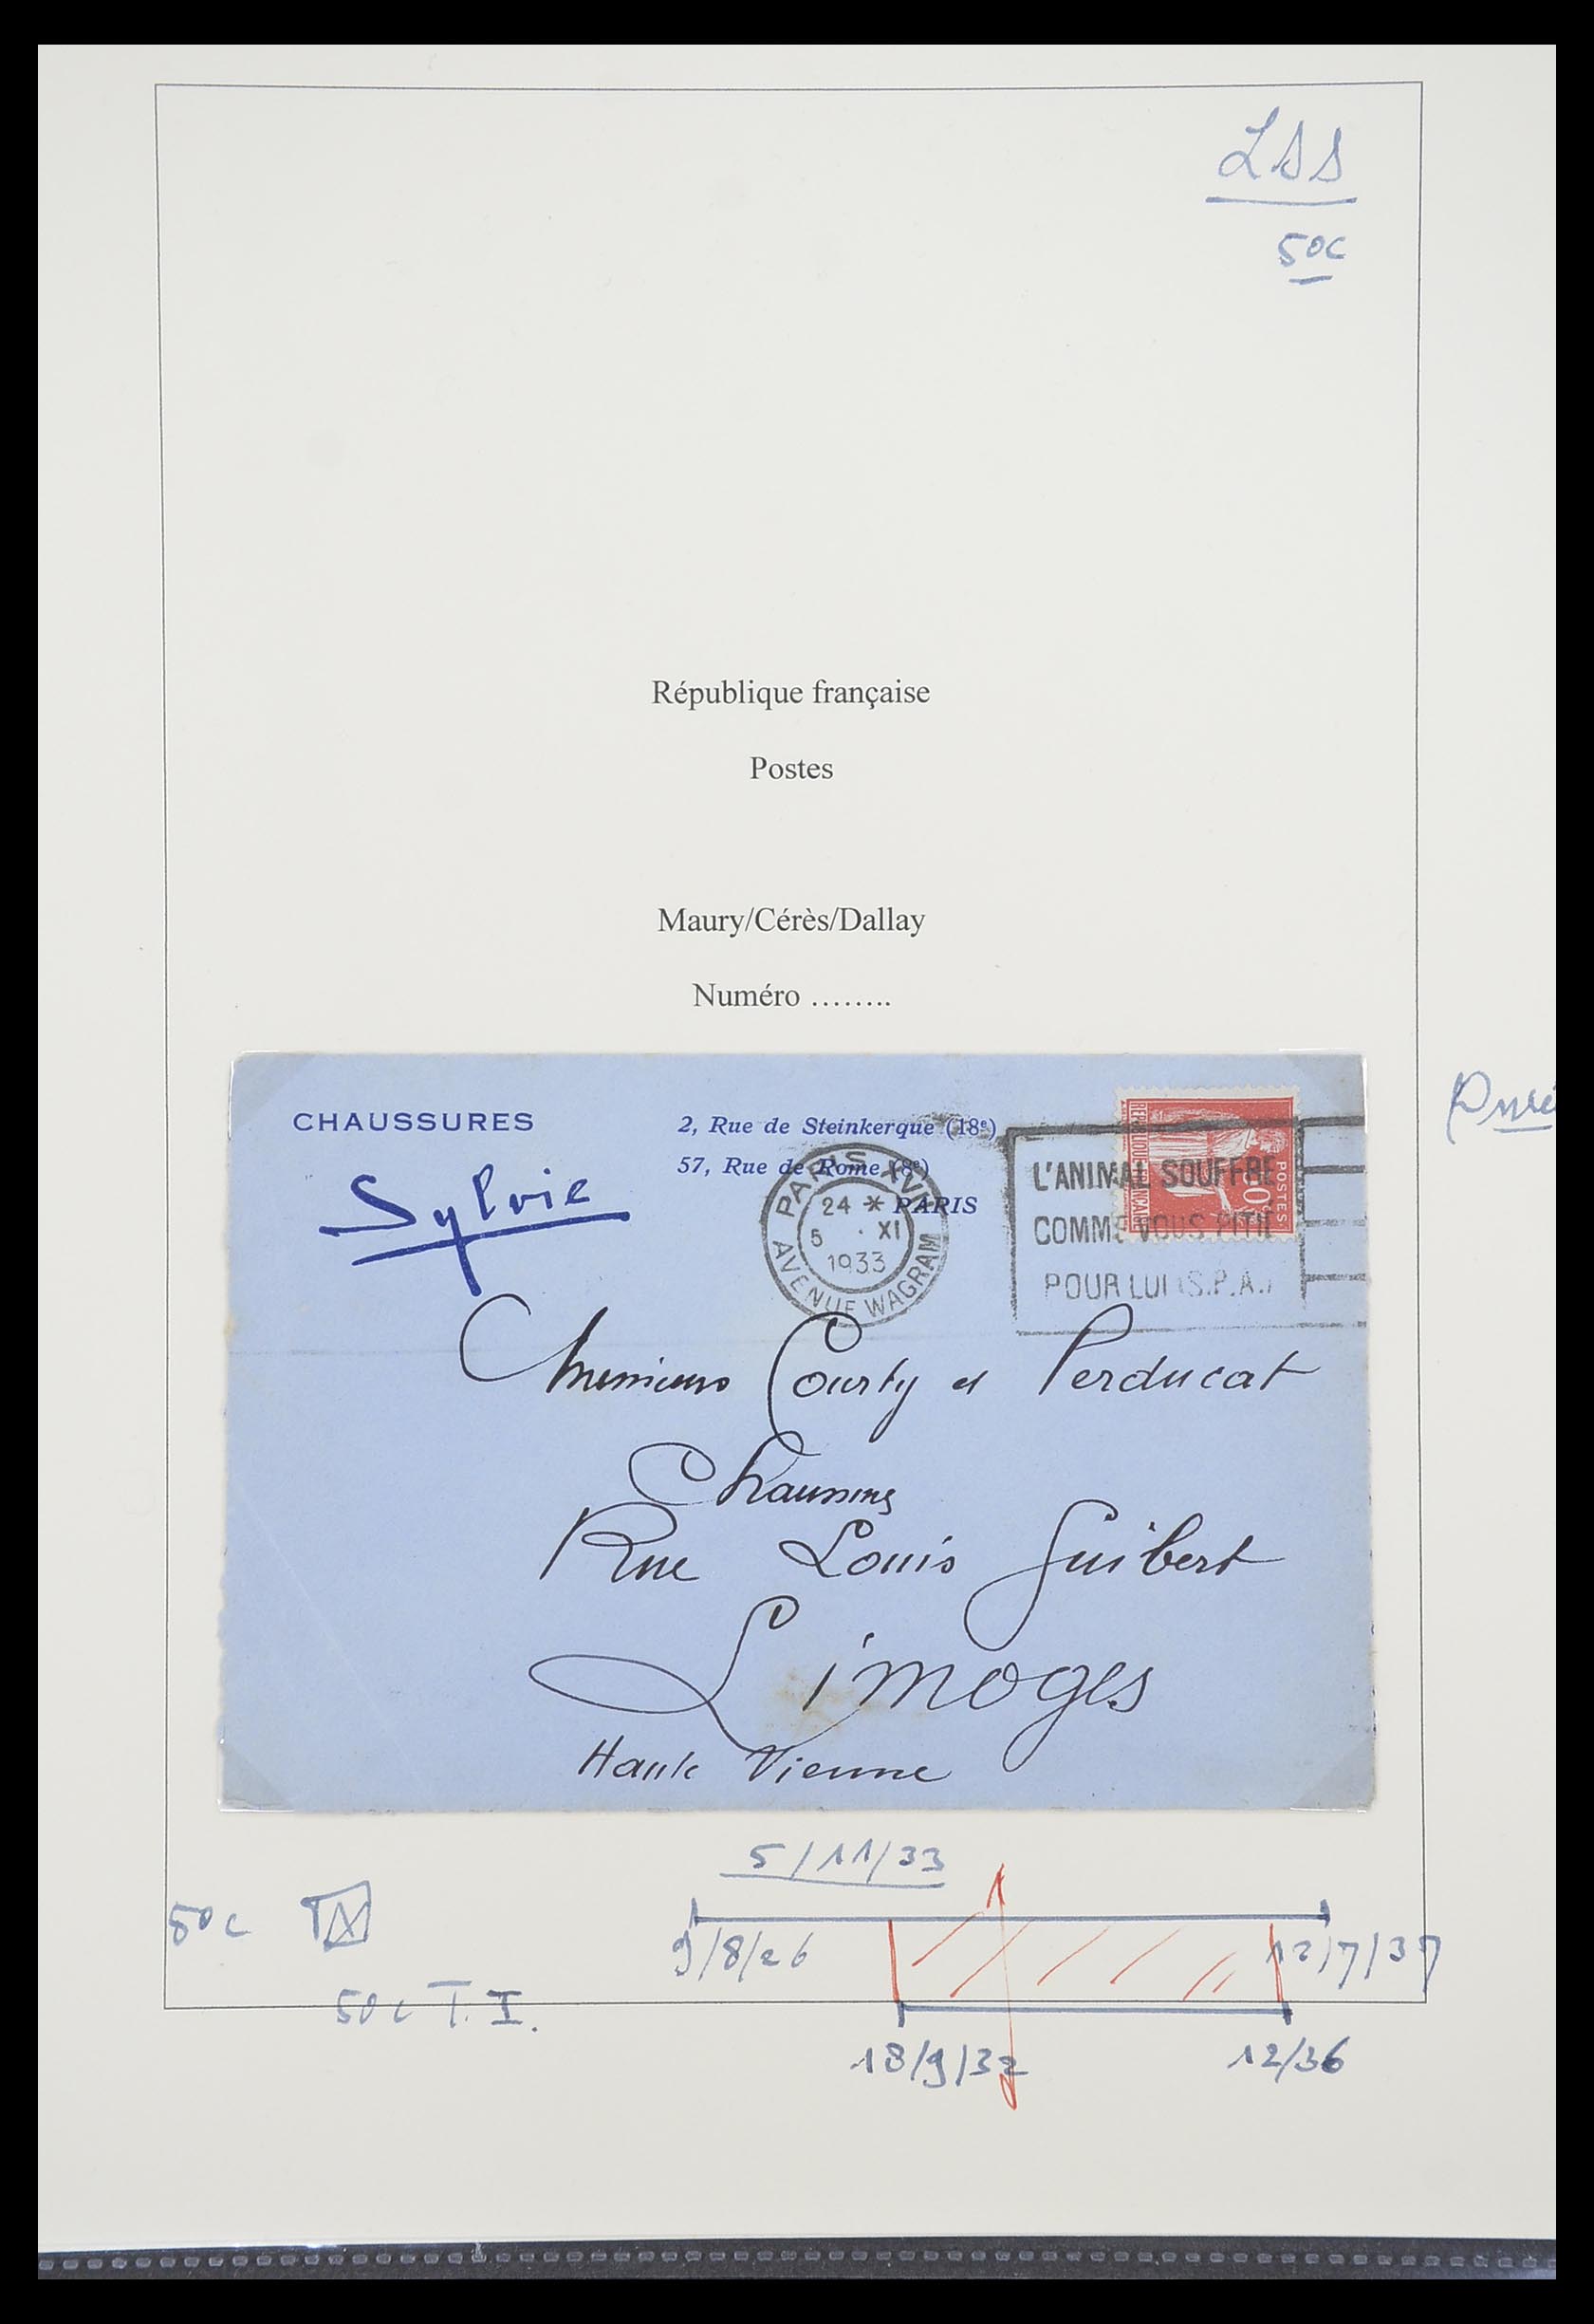 LSS
50c
République française
Postes
Maury/Cérès/Dallay
Numéro ........
CHAUSSURES
Sylvie
2, Rue de Steinkerque (18e)
57, Rue de Rome (8e)
PARIS
PARIS XVII
24 *
5 . XI
1933
AVENUE WAGRAM
L'ANIMAL SOUFFRE
COMME VOUS PITIE
POUR LUI (S.P.A.)
RÉPUBLIQUE FRANÇAISE
50c
POSTES
Messieurs Courty et Perducat
Chaussures
Rue Louis Guibert
Limoges
Haute Vienne
5/11/33
50c
9/8/26
12/7/37
50c T.I.
18/9/32
12/36